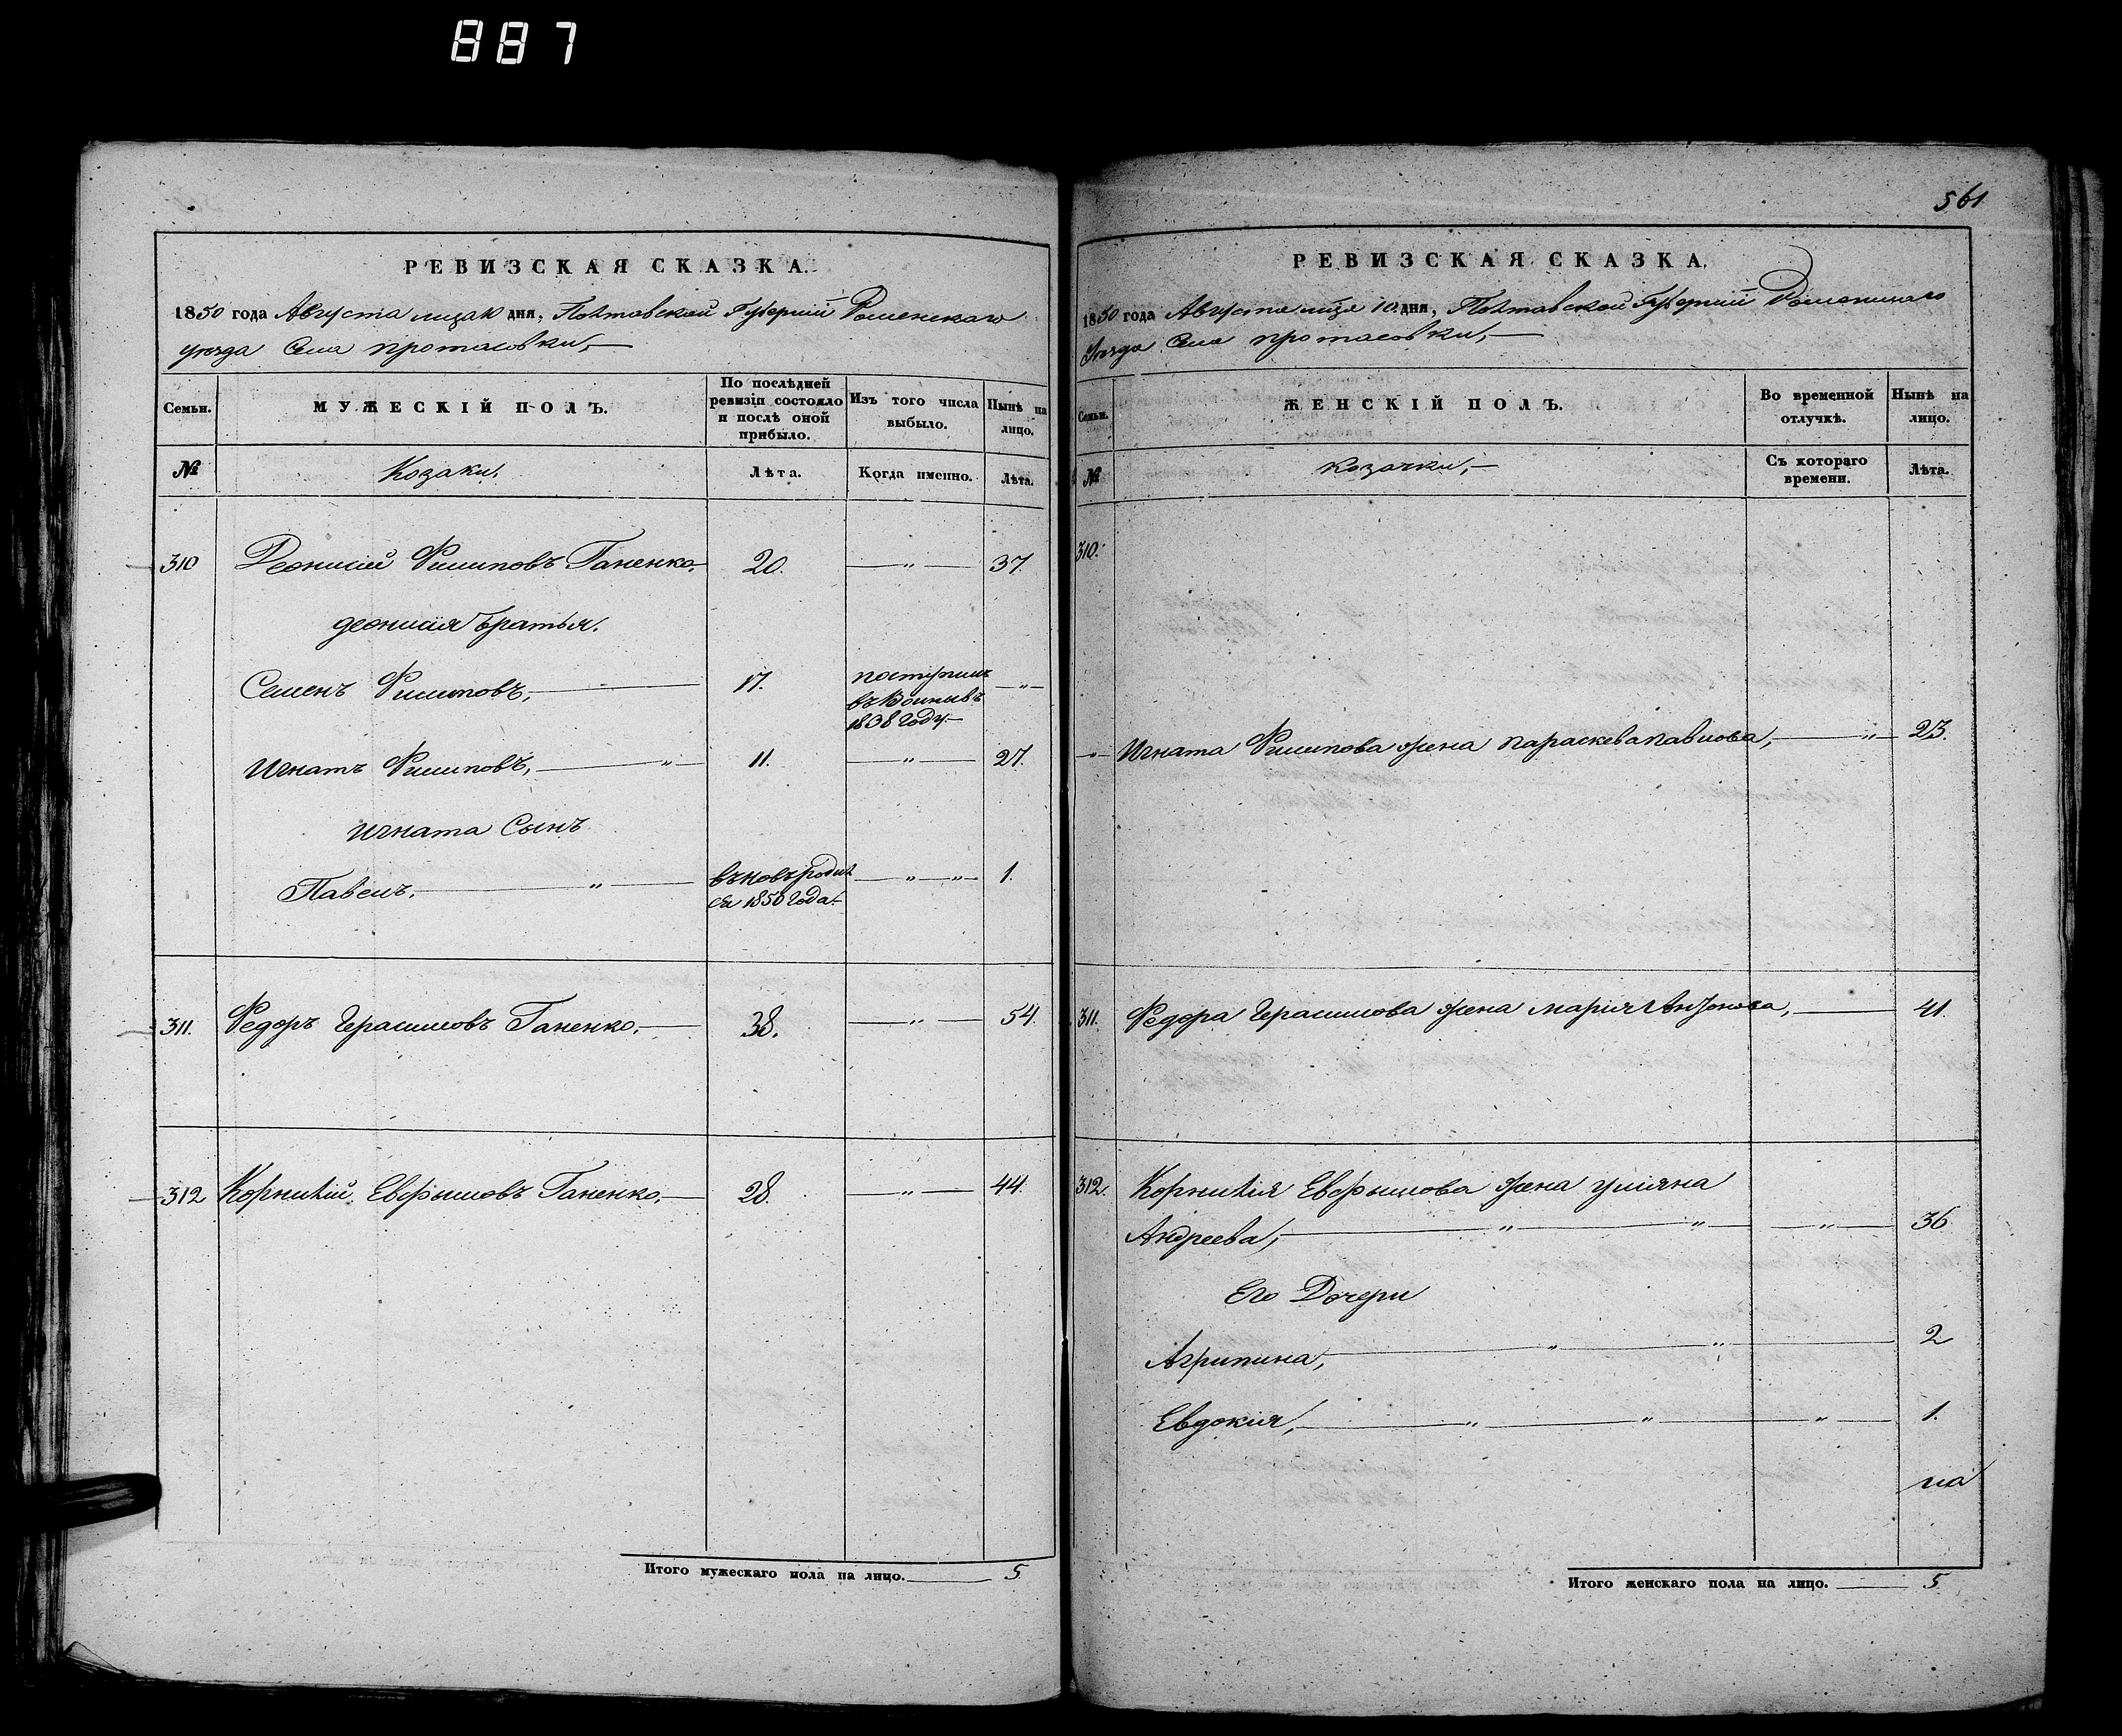 887
РЕВИЗСКАЯ СКАЗКА.
1850 года Августа мца 10 дня, Полтавской Губерній Роменскаго
уезда Села протасовки,
Семьи.
МУЖЕСКІЙ ПОЛЪ.
По послѣдней ревизіи состояло и послѣ оной прибыло.
Изъ того числа выбыло.
Нынѣ на лицо.
№
Козаки.
Лѣта.
Когда именно.
Лѣта.
310 Деонисій Филиповъ Ганенко. 20. — " — 37.
деонисія братья.
Семенъ Филиповъ, 17. поступилъ — " —
въ 
1838 Году.
Игнатъ Филиповъ, " 11. — " — 27.
Игната Сынъ
Павелъ. " вновь родил — " — " — 1.
ся 1850 Года.
311. Федоръ Герасимовъ Ганенко. 38. — " — 54.
312 Корнилій Евфимовъ Ганенко. 28. — " — 44.
Итого мужескаго пола на лицо. 5.
561
РЕВИЗСКАЯ СКАЗКА.
1850 года Августа мца 10. дня, Полтавской Губерній Роменскаго
Уезда Села протасовки,
Семьи.
ЖЕНСКІЙ ПОЛЪ.
Во временной отлучкѣ.
Нынѣ на лицо.
№
козачки,
Съ котораго времени.
Лѣта.
310.
— " — Игната Филипова жена параскева павлова, — " — 23.
311. Федора Герасимова жена марія Антонова, 41.
312. Корнилія Евфимова жена уліяна
Андреева, " " — " — 36
Его Дочери
Агрипина, " " 2
Евдокія, " " " 1.
Итого женскаго пола на лицо. 5